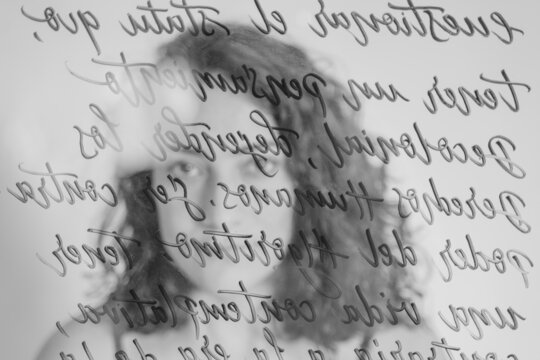 cuestionar el statu quo,
tener un pensamiento
Decolonial, defender los
Derechos Humanos. Ser contra
poder del Algoritmo. Tener
una vida contemplativa,
a la era de la